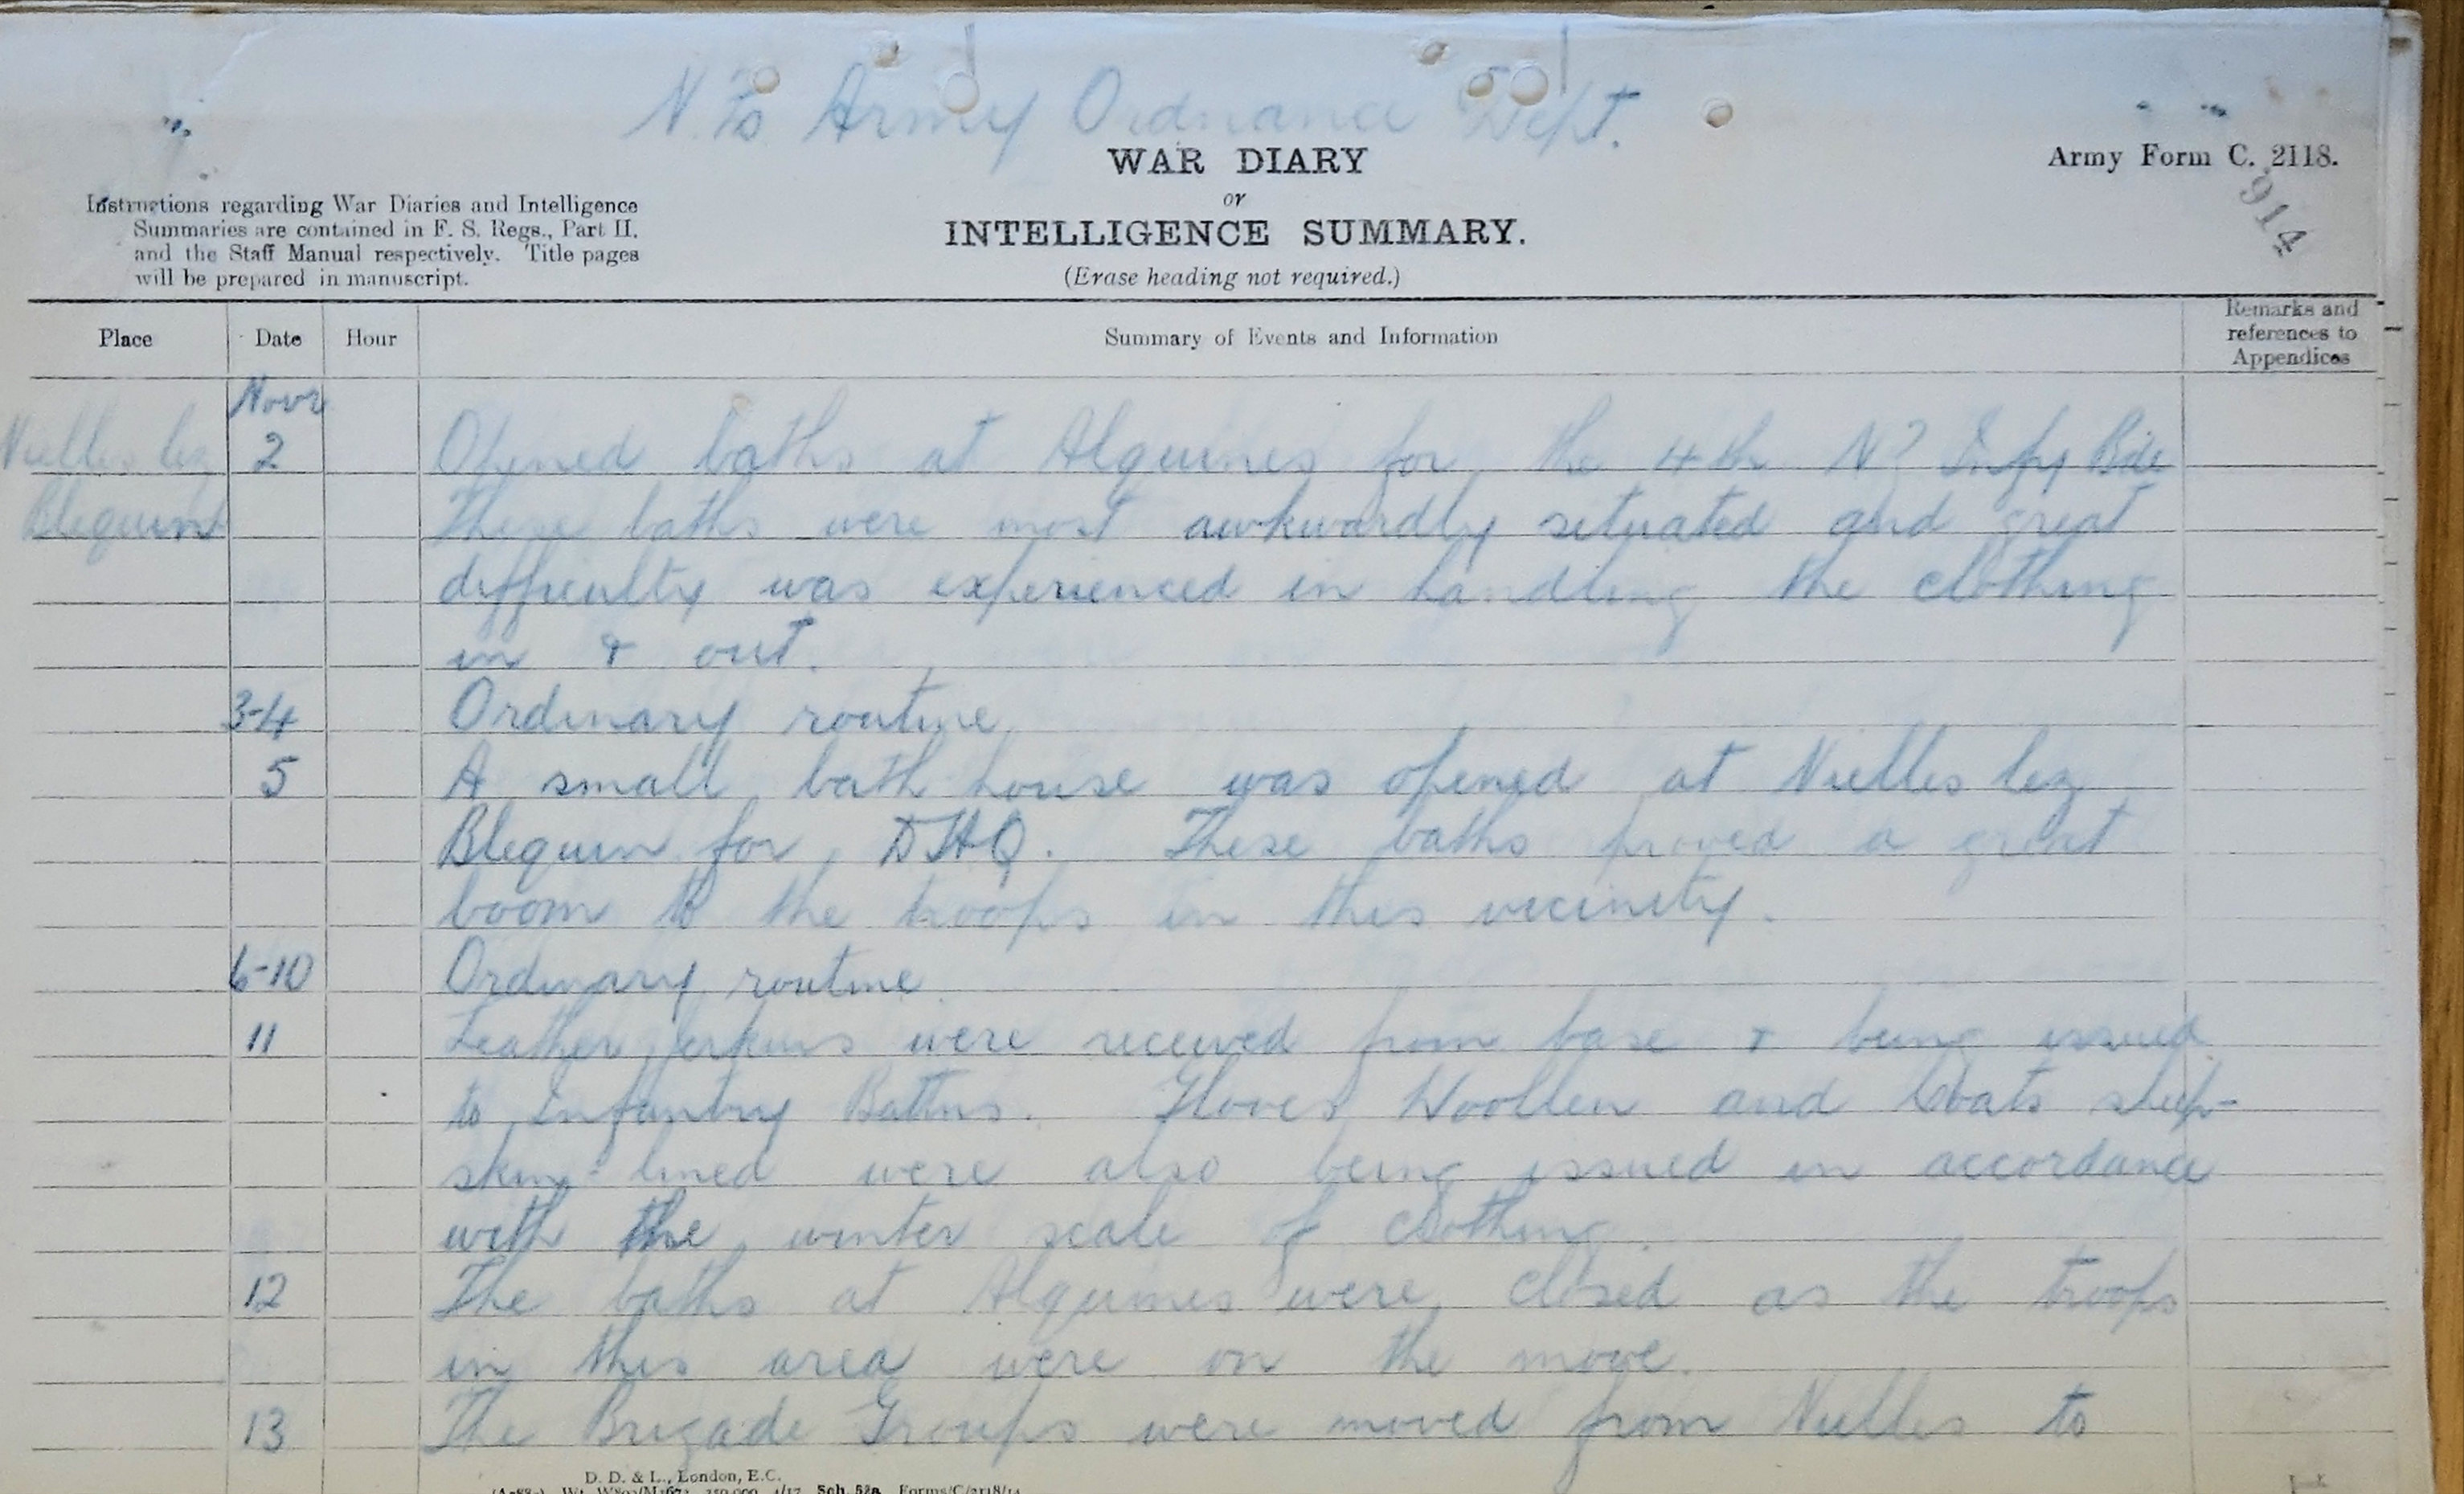 N. Zo Army Ordnance Dept.
WAR DIARY
or
INTELLIGENCE SUMMARY.
(Erase heading not required.)
Army Form C. 2118.
914
Instructions regarding War Diaries and Intelligence
Summaries are contained in F. S. Regs., Part II.
and the Staff Manual respectively. Title pages
will be prepared in manuscript.
Place Date Hour Summary of Events and Information Remarks and references to Appendices
Novr
Nielles lez 2 Opened baths at Alquines for the 4th N Z Infy Bde
Blequin These baths were most awkwardly situated and great
difficulty was experienced in handling the clothing
in & out.
3-4 Ordinary routine
5 A small bath house was opened at Nielles lez
Blequin for DHQ. These baths proved a great
boom to the troops in this vicinity.
6-10 Ordinary routine
11 Leather jerkins were received from base & being issued
to Infantry Battns. Gloves Woollen and Coats sheep-
skin-lined were also being issued in accordance
with the winter scale of clothing.
12 The baths at Alquines were closed as the troops
in this area were on the move.
13 The Brigade Groups were moved from Nielles to
D. D. & L., London, E.C.
Sch. 52a Forms/C/2118/14